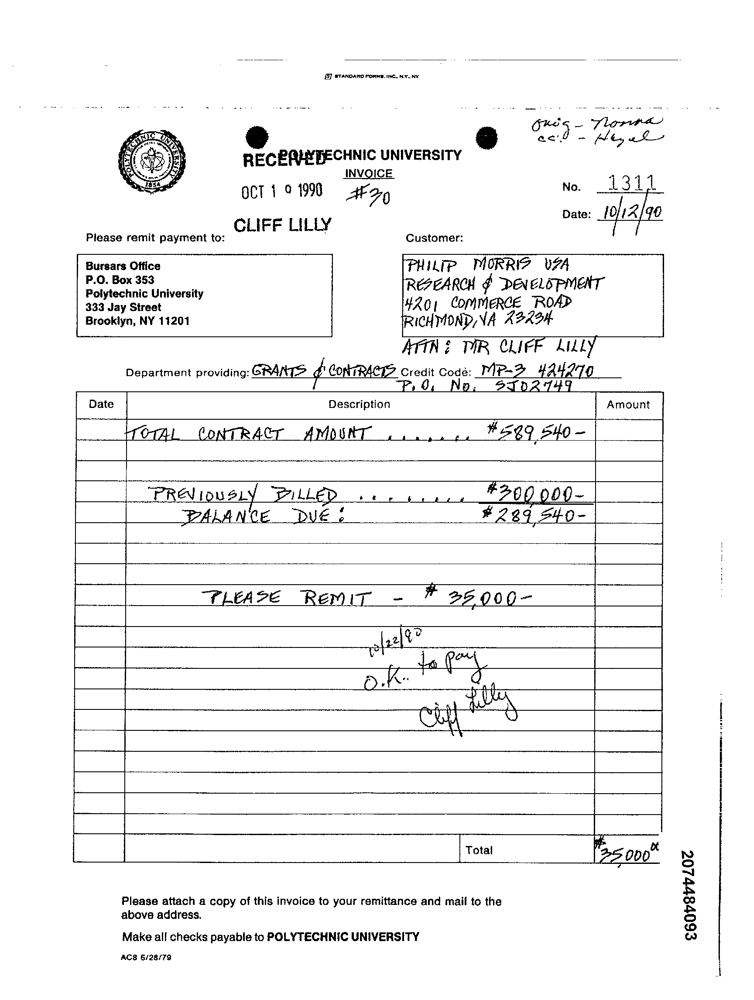 STANDARD FORMS, INC., N.Y., NY
Orig - Nonna
cc: - Hazel
POLYTECHNIC UNIVERSITY
1854
POLYTECHNIC UNIVERSITY
RECEIVED
INVOICE
OCT 19 1990
#30
No. 1311
Date: 10/12/90
CLIFF LILLY
Please remit payment to:
Customer:
Bursars Office
P.O. Box 353
Polytechnic University
333 Jay Street
Brooklyn, NY 11201
PHILIP MORRIS USA
RESEARCH & DEVELOPMENT
4201 COMMERCE ROAD
RICHMOND, VA 23234
ATTN: MR CLIFF LILLY
Department providing: GRANTS & CONTRACTS Credit Code: MP-3 424270
P.O. No. 5J02749
Date Description Amount
TOTAL CONTRACT AMOUNT ....... $589,540-
PREVIOUSLY BILLED ........ $300,000-
BALANCE DUE: $289,540-
PLEASE REMIT - $ 35,000-
10/22/90
O.K. to pay
Cliff Lilly
Total $35,000
Please attach a copy of this invoice to your remittance and mail to the
above address.
Make all checks payable to POLYTECHNIC UNIVERSITY
ACS 6/28/79
2074484093